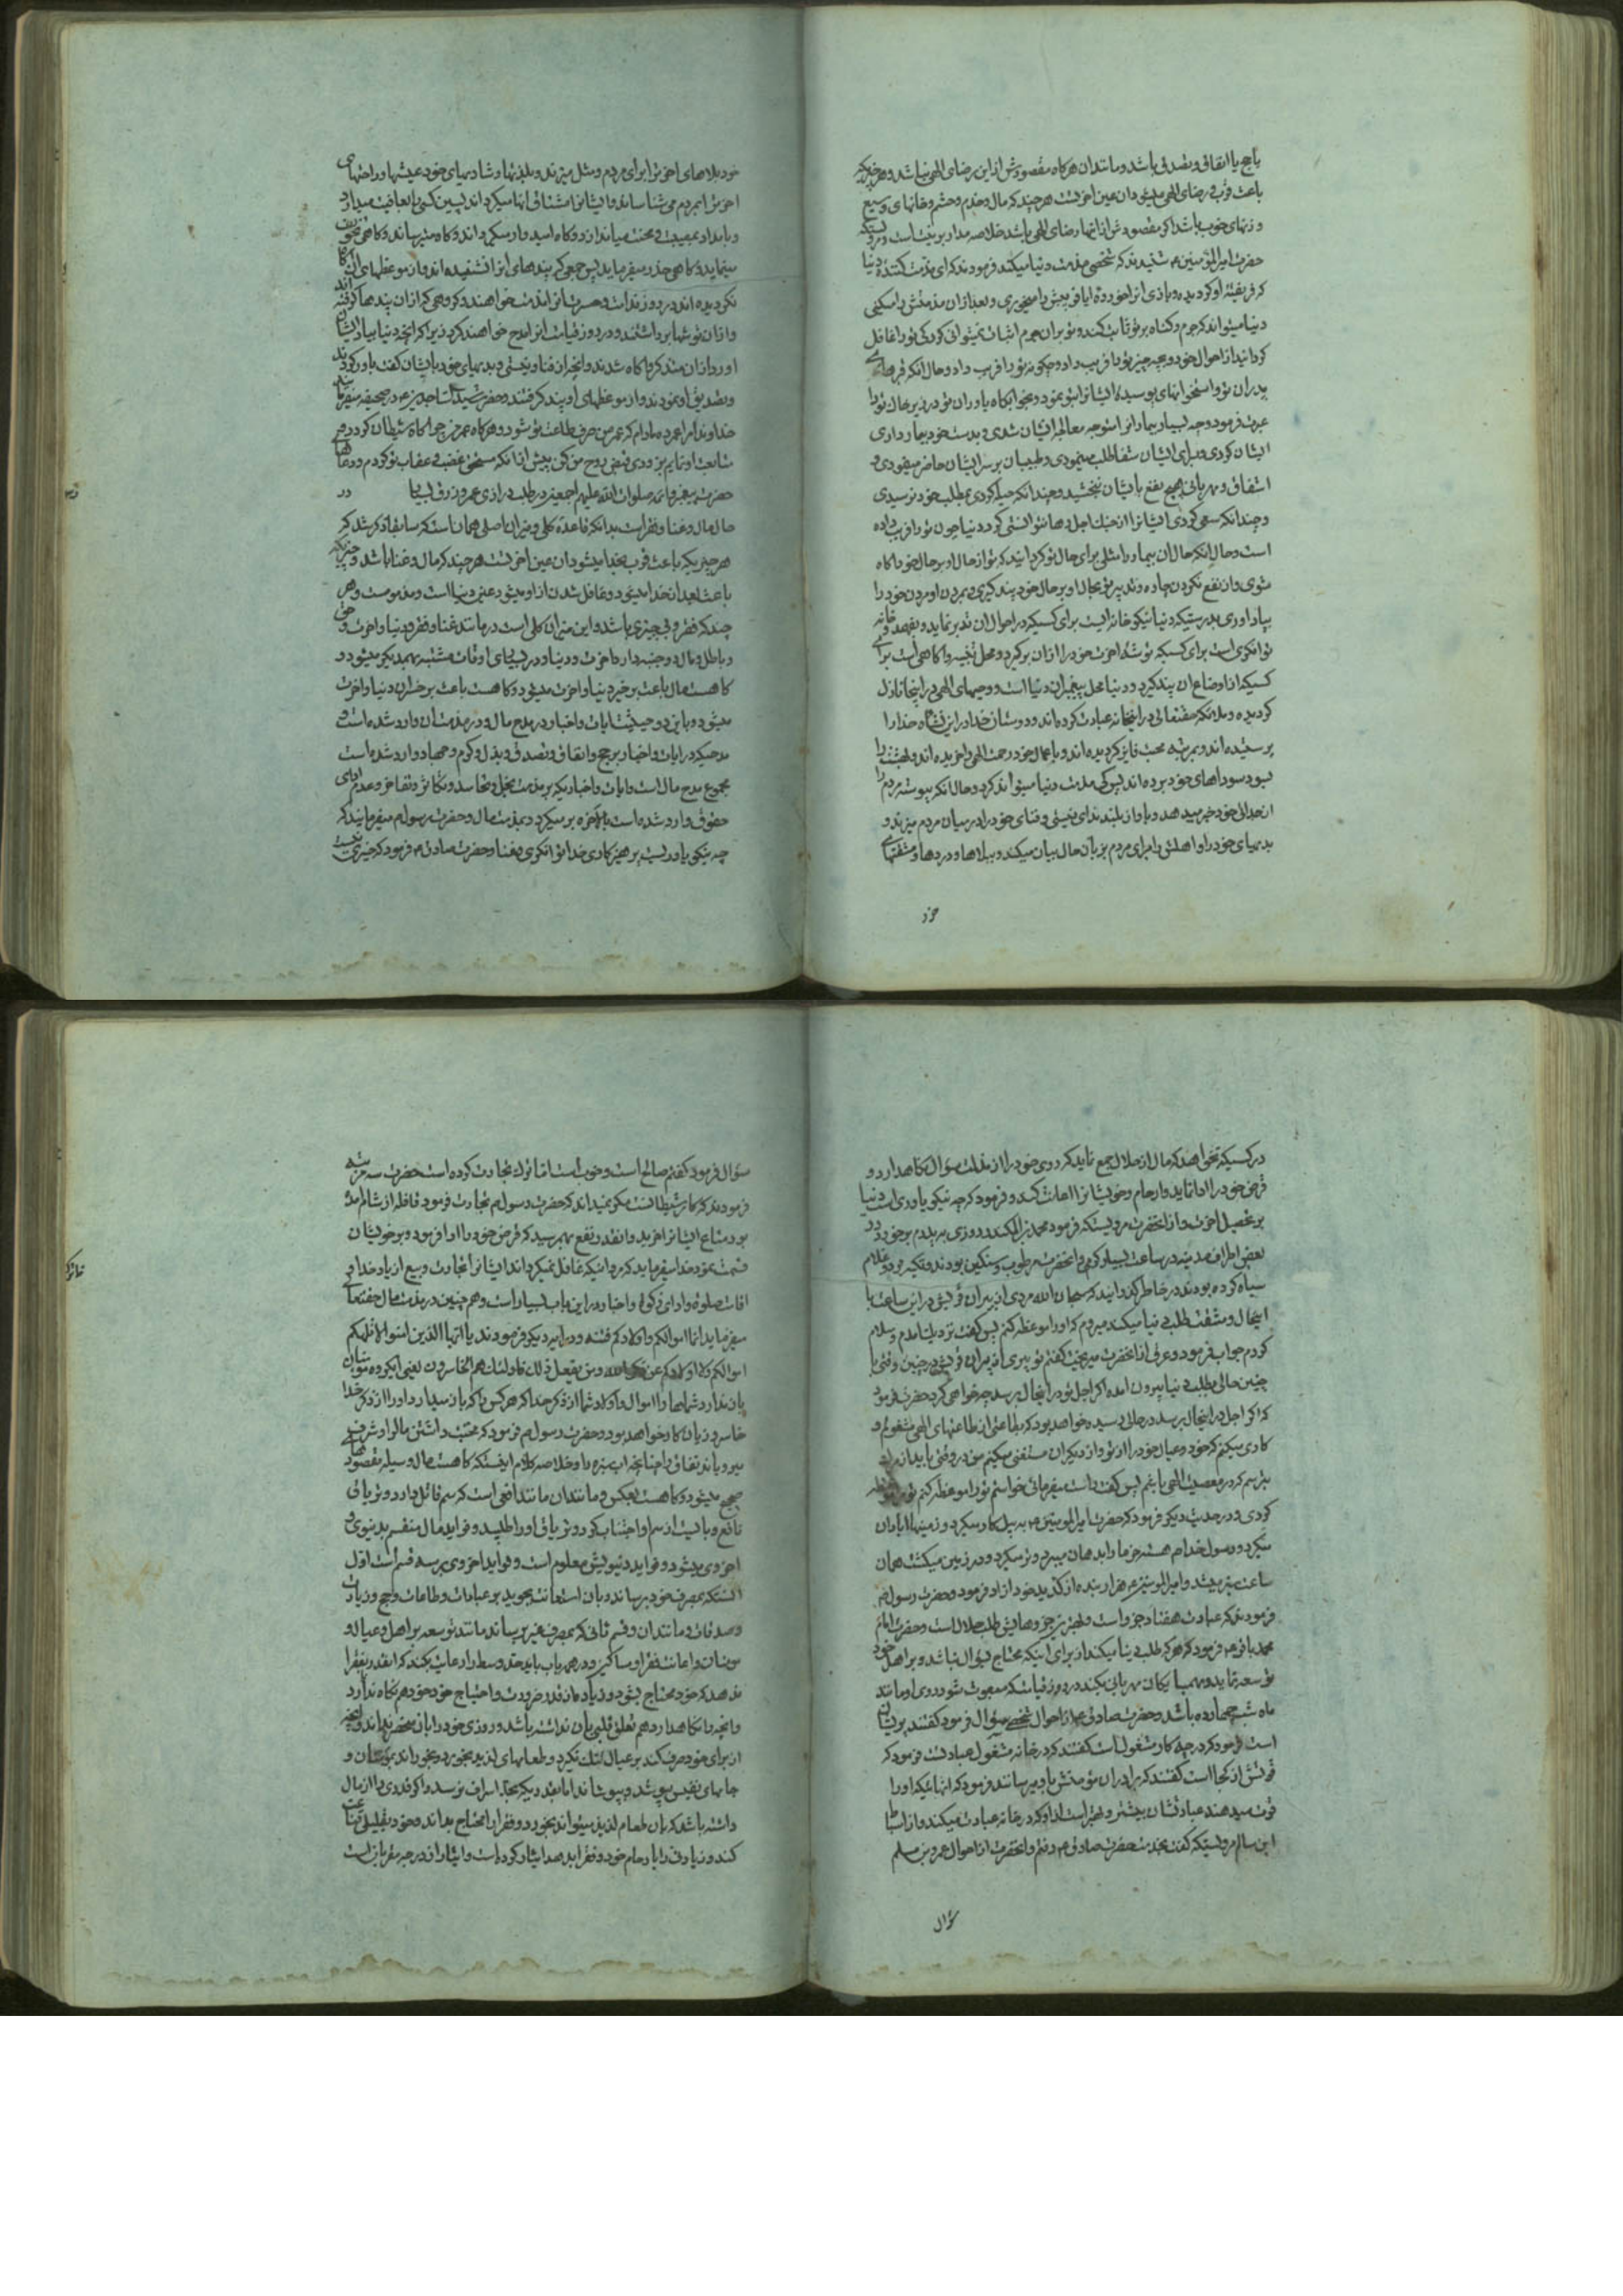 یا حج یا انفاق و تصدق باشد و مانند آن هرگاه مقصودش از این رضای الهی نباشد و هر چیزیکه
باعث قرب و رضای الهی میشود آن عین آخرتست هرچند که مال و خدم و حشم و خانهای وسیع
و زنهای خوب باشد اگر مقصودش از اینها رضای الهی باشد خلاصه مدار بر نیت است
حضرت امیرالمؤمنین ع شنیدند که شخصی مذمت دنیا میکند فرمودند که ای مذمت کنندهٔ دنیا
که فریفته او گردیده و بازی او را خوردهٔ ایا فریبش را میخوری و بعد از آن مذمتش را میکنی
دنیا میتواند که جرم و گناه بر تو ثابت کند و تو بر آن جرم اثبات نمیتوانی کرد کی تو را غافل
گردانید از احوال خود و بچه چیز تو را فریب داد و چگونه تو را فریب داد و حال آنکه قبرهای
پدران تو و استخوانهای پوسیده ایشانرا بتو نمود و خوابگاه مادران تو در زیر خاک تو را
عبرت فرمود و چه بسیار بیمار انرا متوجه معالجه ایشان شدی و بدست خود بیمارداری
ایشان کردی و برای ایشان شفا طلب مینمودی و طبیبان بر سر ایشان حاضر مینمودی و
اشفاق و مهربانی هیچ نفع بایشان نبخشید و چندانکه حیله کردی بمطلب خود نرسیدی
و چندانکه سعی کردی ایشانرا از چنگ اجل رها نتوانستی کرد دنیا چون تو را فریب داده
است و حال آنکه حال آن بیمار را مثلی برای حال تو گردانید که تو از حال او بر حال خود آگاه
شوی و از نفع نکردن چاره و تدبیر تو بحال او بر حال خود پند گیری و بمردن او مردن خود را
بیاد آوری بدرستیکه دنیا نیکو خانه ایست برای کسیکه در احوال آن تدبر نماید و بفهمد و خانه
توانگری است برای کسیکه توشه آخرت خود را از آن برگیرد و محل تنبیه و آگاهی است برای
کسیکه از اوضاع آن پند گیرد و دنیا محل پیغمبران دنیا است و وحیهای الهی در اینجا نازل
گردیده و ملائکه حقتعالی در اینخانه عبادت کرده‌اند و دوستان خدا در این نشاه خدا را
پرستیده‌اند و بمرتبه محبت فایز گردیده‌اند و باعمال خود رحمت الهی را خریده‌اند و بهشت را
بسود سوداهای خود برده‌اند پس کی مذمت دنیا میتواند کرد و حال آنکه پیوسته مردم را
از جدائی خود خبر میدهد و باواز بلند ندای نیستی و فنای خود را در میان مردم میزند و
بدیهای خود را و اهلش را برای مردم بزبان حال بیان میکند و ببلاها و دردها و مشقتهای
خود
خود بلاهای آخرت را برای مردم مثل میزند و بلذتها و شادیهای خود عیشها و راحتهای
آخرت را بمردم می‌شناساند و ایشانرا مشتاق آنها میگرداند پسین کسی را بعافیت میدارد
و بامداد بمصیبت و محنت میاندازد و گاه امیدوار میگرداند و گاه میترساند و گاهی تخویف
مینماید و گاهی حذر میفرماید پس جمعی که پندهای او را نشنیده‌اند و از موعظهای آن آگاه
نگردیده‌اند در روز ندامت و حسرت او را مذمت خواهند و گروهی که از آن پندها گرفته‌اند
و از آن توشها برداشتند در روز قیامت او را مدح خواهند کرد زیرا که آنچه دنیا بیاد ایشان
آورد از آن متذکر و آگاه شدند و آنچه از فنا و نیستی و بدیهای خود بایشان گفت باور کردند
و تصدیق او نمودند و از موعظهای او پند گرفتند و حضرت سیدالساجدین ع در صحیفه میفرماید
خداوندا مرا عمر ده مادام که عمر من صرف طاعت تو شود و هرگاه عمر من چراگاه شیطان گردد و من
متابعت او نمایم بزودی قبض روح من کن پیش از آنکه مستحق غضب و عقاب تو گردم و دعاهای
حضرت پیغمبر و ائمه صلوات الله علیهم اجمعین در طلب درازی عمر و رزق بسیار در
حال مال و غنا و فقر است بدانکه قاعدهٔ کلی و میزان اصلی همان است که سابقا ذکر شد که
هر چیزیکه باعث قرب بخدا میشود آن عین آخرتست هرچند که مال و غنا باشد و چیزیکه
باعث بعد از خدا میشود و غافل شدن از او میشود عین دنیا است و مذمومست و هر
چند که فقر و بیچیزی باشد و این میزان کلی است در مانند غنا و فقر و دنیا و آخرت و حق
و باطل و مال دو جنبه دارد آخرت و دنیا و در بسیاری اوقات مشتبه بهمدیگر میشود و
گاهست مال باعث بر خیر دنیا و آخرت میشود و گاهست باعث بر خسران دنیا و آخرت
میشود و باین دو حیثیت آیات و اخبار در مدح مال و در مذمت آن وارد شده است و
مدحیکه در آیات و اخبار بر حج و انفاق و تصدق و بذل و کرم و جهاد وارد شده است
مجموع مدح مال است و آیات و اخباریکه بر مذمت بخل و تحاسد و تکاثر و تفاخر و عدم ادای
حقوق وارد شده است بالاخره برمیگردد بمذمت مال و حضرت رسول م میفرماید که
چه نیکو یاوریست پرهیزکاری خدا توانگری و غنا و حضرت صادق ع فرمود که خیری نیست
در کسیکه نخواهد که مال از حلال جمع نماید که روی خود را از مذلت سؤال نگاهدارد و
قرض خود را ادا نماید و ارحام و خویشانرا اعانت کند و فرمود که چه نیکو یاوری است دنیا
بر تحصیل آخرت و از آنحضرت مرویستکه فرمود محمد بن المنکدر روزی به پدرم برخورد در
بعضی اطراف مدینه در ساعت بسیار گرمی و آنحضرت مرطوب و سنگین بودند و تکیه بر دو غلام
سیاه کرده بودند در خاطر گذرانید که سبحان الله مردی از پیران قریش در این ساعت با
اینحال و مشقت طلب دنیا میکند میروم که او را موعظه کنم پس گفت نزدیک آمدم و سلام
کردم جواب فرمود و عرق از آنحضرت میریخت گفتم تو پیری از پیران قریش در چنین وقتی با
چنین حالی بطلب دنیا بیرون آمدهٔ اگر اجل تو در اینحال برسد چه خواهی کرد حضرت فرمود
که اگر اجل در اینحال برسد در حالی رسیده خواهد بود که بطاعتی از طاعتهای الهی مشغولم و
کاری میکنم که خود و عیال خود را از تو و از دیگران مستغنی میکنم من در وقتی باید از مرگ
بترسم که در معصیت الهی باشم پس گفت راست میفرمائی خواستم تو را موعظه کنم تو مرا موعظه
کردی و در حدیث دیگر فرمود که حضرت امیرالمؤمنین ع به بیل کار میکرد و زمینها را آبادان
میکرد و رسول خدا م هسته خرما را بدهان میبرد و تر میکرد و در زمین میکشت همان
ساعت سبز میشد و امیرالمؤمنین ع هزار بنده از کد ید خود آزاد فرمود و حضرت رسول م
فرمودند که عبادت هفتاد جزو است و بهترین جزوهایش طلب حلال است و حضرت امام
محمد باقر ع فرمود که هر که طلب دنیا میکند از برای اینکه محتاج بسؤال نباشد و بر اهل خود
توسعه نماید و بهمسایگان مهربانی بکند در روز قیامت که مبعوث شود روی او مانند
ماه شب چهارده باشد و حضرت صادق ع از احوال شخصی سؤال فرمود گفتند پریشان
است فرمود که در چه کار مشغول است گفتند که در خانه مشغول عبادت فرمود که
قوتش از کجا است گفتند که برادران مؤمنش باو میرسانند فرمود که آنهائیکه او را
قوت میدهند عبادتشان بیشتر و بهتر است از او که در خانه عبادت میکند و از اسباط
ابن سالم مرویستکه گفت بخدمت حضرت صادق م رفتم و آنحضرت از احوال عمرو بن مسلم
سؤال
سؤال فرمود گفتم صالح است و خوب است اما ترک تجارت کرده است حضرت سه مرتبه
فرمودند که کار شیطانست مگر نمیداند که حضرت رسول م تجارت فرمود قافله از شام آمده
بود متاع ایشانرا خرید و آنقدر نفع بهم رسید که قرض خود را ادا فرمود و بر خویشان
قسمت نمود خدا میفرماید که مردانیکه غافل نمیگرداند ایشانرا تجارت و بیع از یاد خدا و
اقامت صلوة و ادای زکوة و اخبار در این باب بسیار است و همچنین در مذمت مال حقتعالی
میفرماید انما اموالکم و اولادکم فتنه و در آیه دیگر فرمودند یا ایها الذین امنوا لا تلهکم
اموالکم و لا اولادکم عن ذکر الله و من یفعل ذلک فاولئک هم الخاسرون یعنی ایگروه مؤمنان
باز ندارد شما را اموال و اولاد شما از ذکر خدا که هر کس را که باز میدارد او را از ذکر خدا
خاسر و زیانکار خواهد بود و حضرت رسول م فرمود که محبت داشتن مال و شرف
میرویاند نفاق را چنانچه آب سبزه را و خلاصه کلام اینستکه گاهست مال وسیله مقصودهای
صحیح میشود و گاهست بعکس و مانند آن مانند افعی است که سم قاتل دارد و تریاقی
نافع و بایست از سم او اجتناب کرد و تریاق او را طلبید و فواید مال منقسم بدنیوی و
اخروی میشود و فواید دنیویش معلوم است و فواید اخروی بر سه قسم است اول
آنستکه بمصرف خود برساند و بآن استعانت بجوید بر عبادات و طاعات و حج و زیارات
و صدقات و مانند آن و قسم ثانی که بمصرف غیر برساند مانند توسعه بر اهل و عیال و
مؤمنان و اعانت فقرا و مساکین و در همه باب باید حد وسط را رعایت بکند که آنقدر بفقرا
ندهد که خود محتاج بشود و زیاده از قدر ضرورت و احتیاج خود هم نگاه ندارد
و آنچه را نگاهدارد هم تعلق قلبی بآن نداشته باشد و روزی خود را بآن منحصر نداند و آنچه
از برای خود صرف کند بر عیال تنگ نگیرد و طعامهای لذیذ بخورد و بخوراند بمؤمنان و
جامهای نفیس بپوشد و بپوشاند اما بقدریکه بحد اسراف نرسد و اگر قدری را از مال
داشته باشد که بآن طعام لذیذ میتواند بخورد و فقرا را محتاج بداند و خود بقلیلی قناعت
کند و زیادتی را بارحام خود و فقرا بدهد ایثار کرده است و ایثار از درجه مقربانست